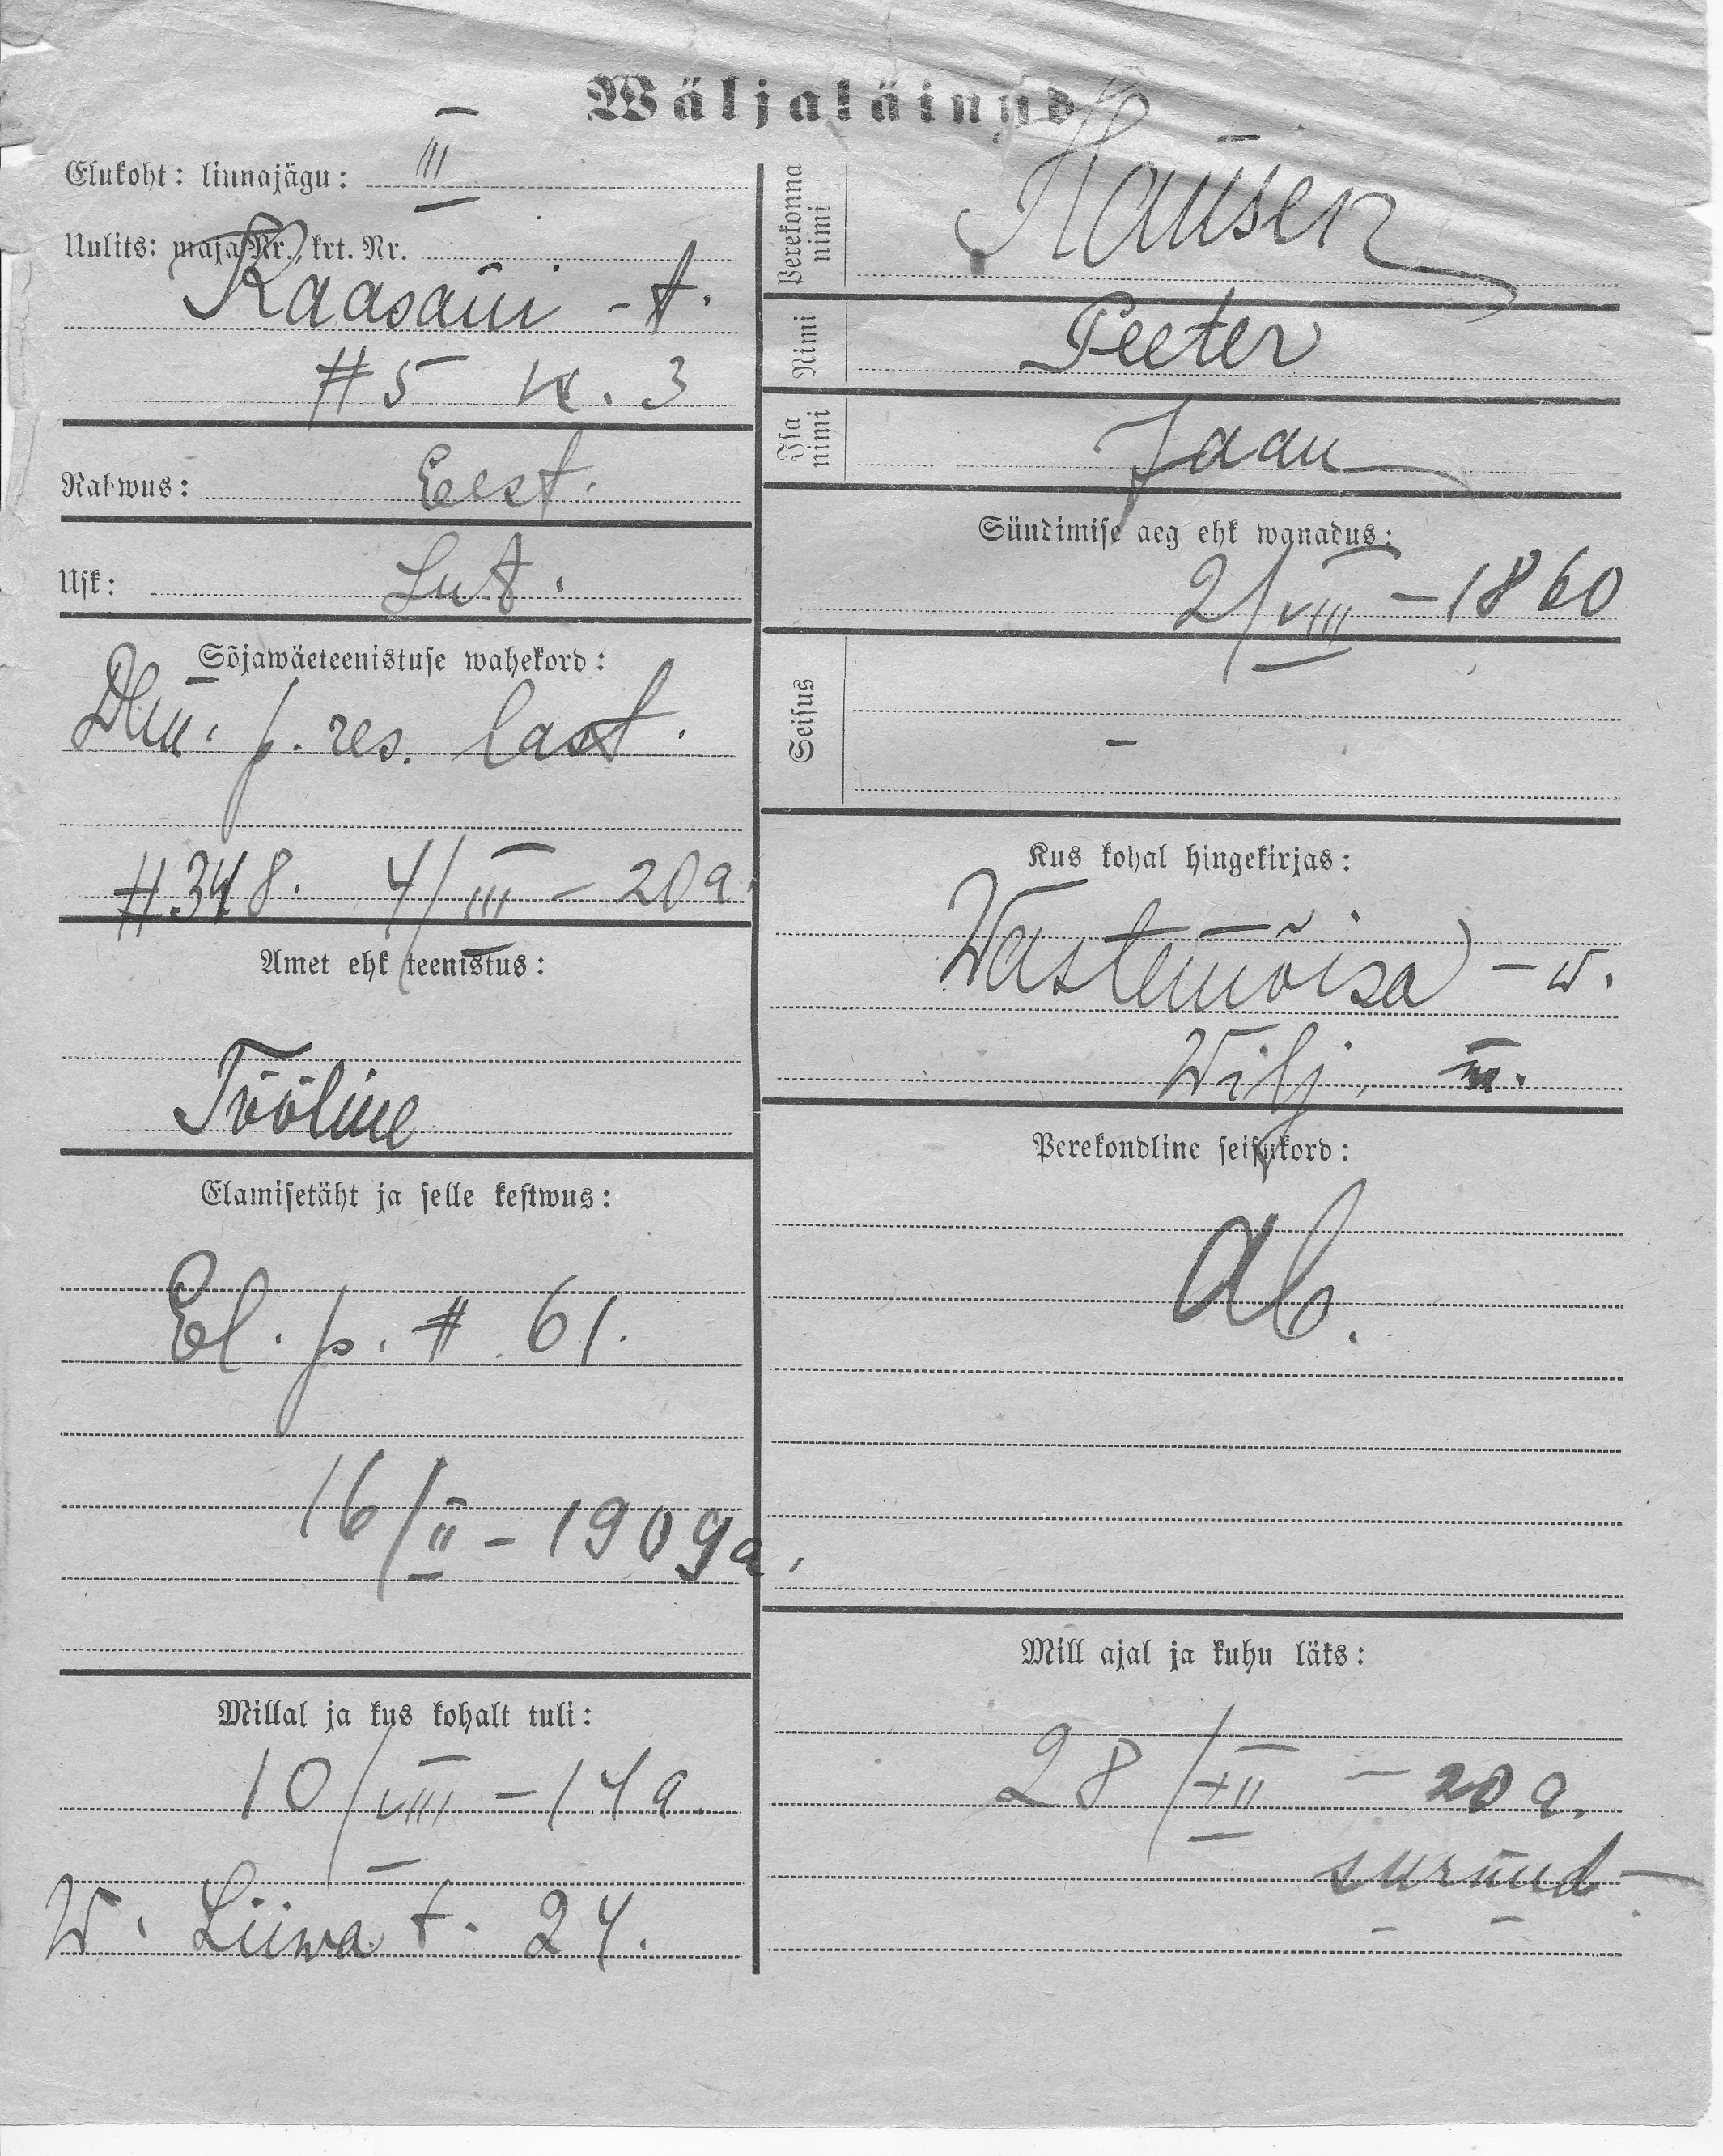 Wäljaläinud
Elukoht: linnajägu: III
Uulits: maja Nr., krt. Nr.
Kaasani - t.
# 5 k. 3
Rahwus: Eest.
Usk: Lut.
Sõjawäeteenistuse wahekord:
p. res. last.
# 348. 4/III - 20 a.
Amet ehk teenistus:
Tööline
Elamisetäht ja selle kestwus:
El. p. # 61.
16/II - 1909 a.
Millal ja kus kohalt tuli:
10/VIII - 14 a.
W. Liiwa t. 24.
Perekonna nimi Hansen
Nimi Peeter
Isa nimi Jaan
Sündimise aeg ehk wanadus:
2/VIII - 1860
Seisus -
Kus kohal hingekirjas:
Wastemõisa - w.
Wilj. m.
Perekondline seisukord:
Ab.
Mill ajal ja kuhu läks:
28/XII - 20 a.
surnud